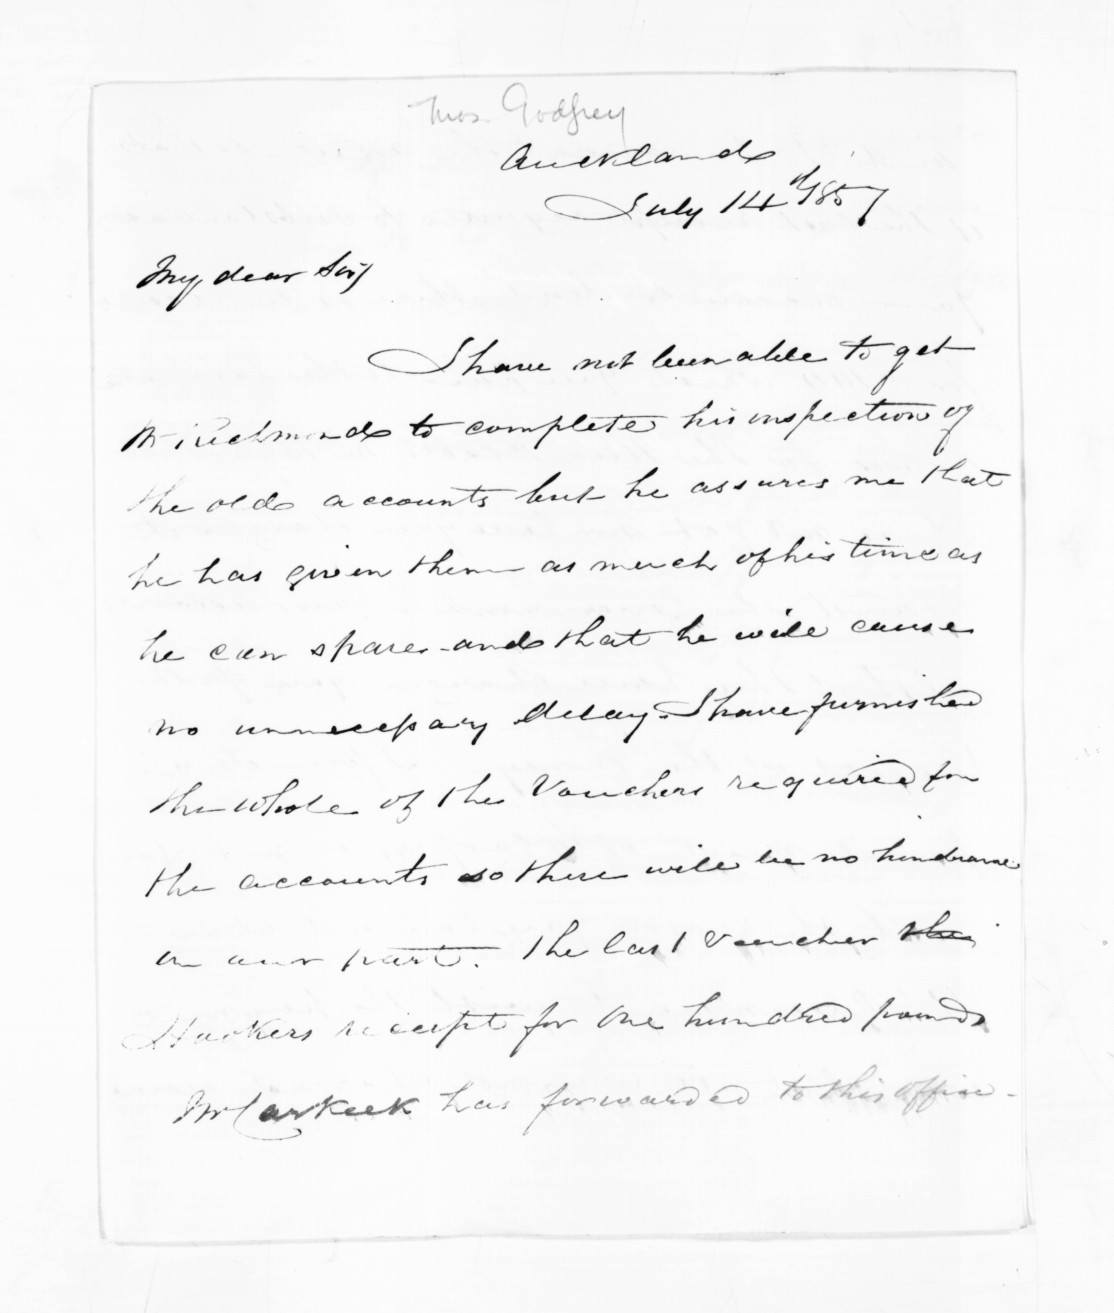 Thos. Godfrey
Auckland
July 14th 1857
My dear Sir,
I have not been able to get
Mr Richmond to complete his inspection of
the old accounts but he assures me that
he has given them as much of his time as
he can spare and that he will cause
no unnecessary delay. I have furnished
the whole of the Vouchers required for
the accounts so there will be no hindrance
on our part. The last Voucher
Hookers receipt for one hundred pounds
Mr Carkeek has forwarded to this office -